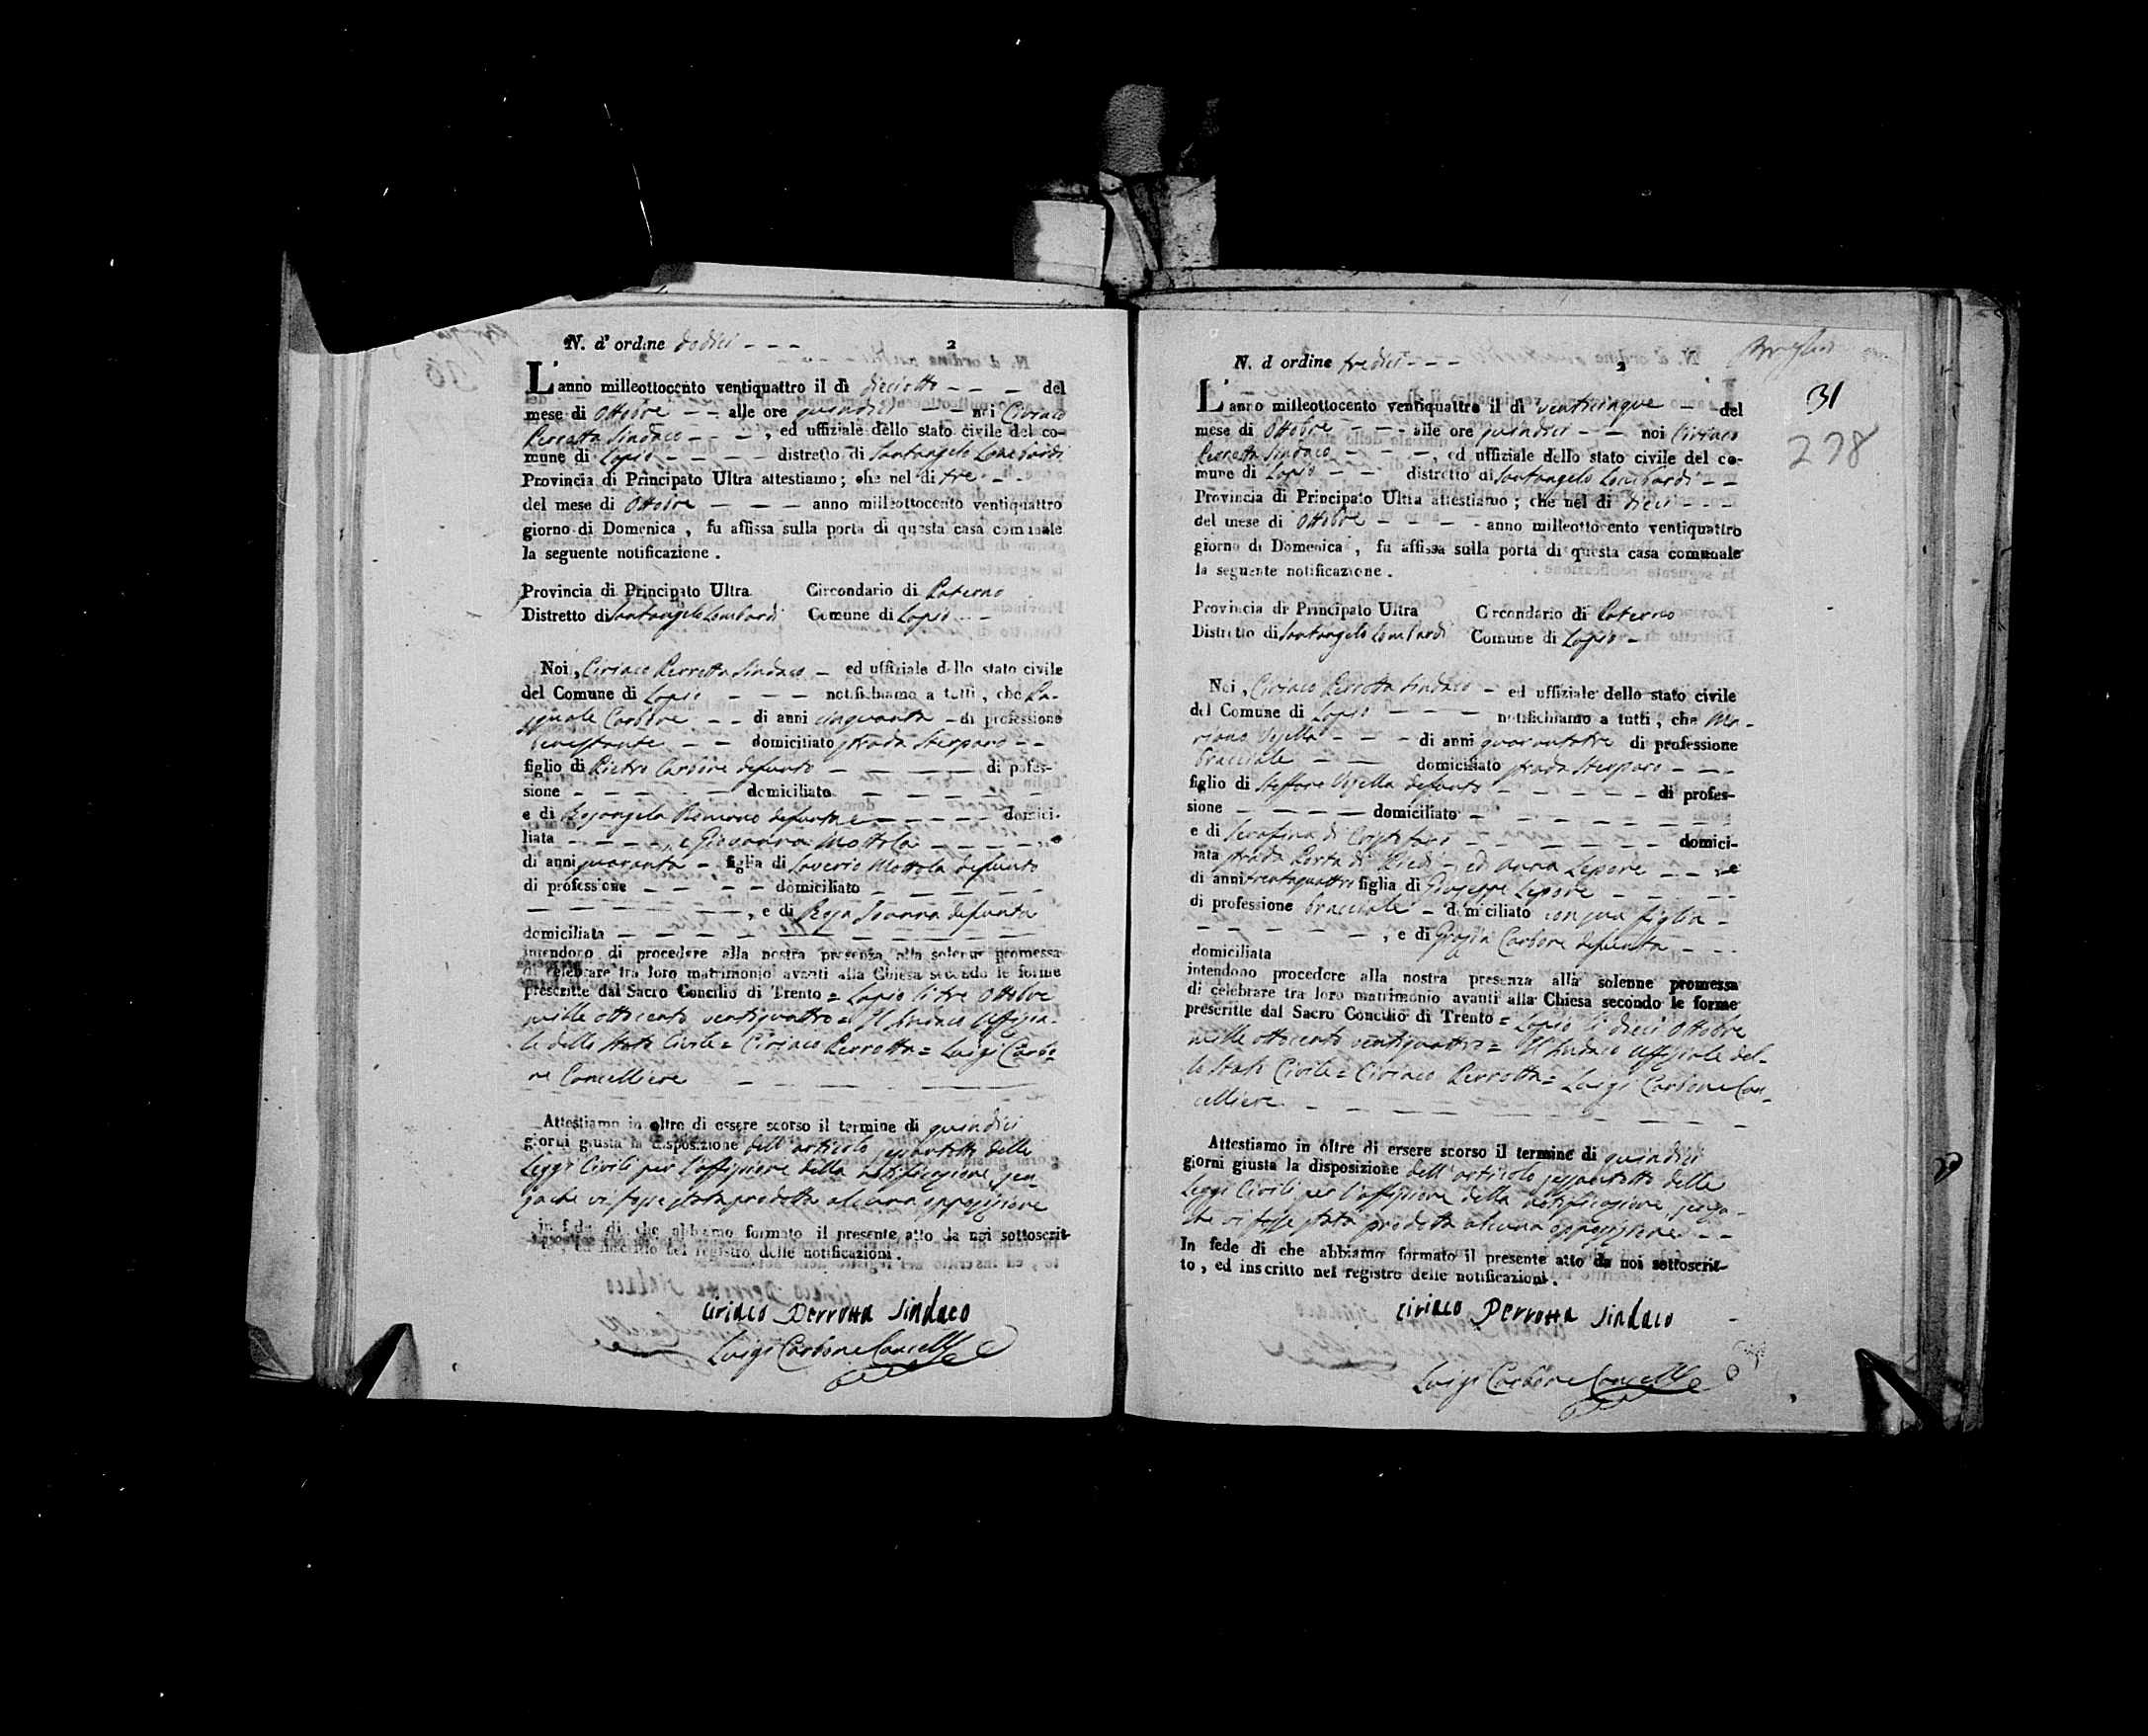 N. d' ordine dodici - - - 2
L'anno milleottocento ventiquattro il dì dieciotto - - - del
mese di Ottobre - - alle ore quindici - - noi Ciriaco
Perrotta Sindaco - - - , ed uffiziale dello stato civile del co-
mune di Lapio - - - - distretto di Santangelo Lombardi
Provincia di Principato Ultra attestiamo; che nel dì tre - -
del mese di Ottobre - - - anno milleottocento ventiquattro
giorno di Domenica, fu affissa sulla porta di questa casa comunale
la seguente notificazione.
Provincia di Principato Ultra Circondario di Paterno
Distretto di Santangelo Lombardi Comune di Lapio - -
Noi, Ciriaco Perrotta Sindaco - ed uffiziale dello stato civile
del Comune di Lapio - - - notifichiamo a tutti, che Pa-
squale Carbone - - di anni cinquanta - di professione
- - domiciliato strada Sterparo - -
figlio di Pietro Carbone defunto - - - - di pofes-
sione - - - - - domiciliato - - - - - -
e di Rosangela Romano defunta e - - - - - domici-
liata - - - - , e Giovanna Mottola - - - - -
di anni quaranta -, figlia di Saverio Mottola defunto
di professione - - - - domiciliato - - - - -
- - - - - - - , e di Rosa Ioanna defunta
domiciliata - - - - - - - - - - -
intendono di procedere alla nostra presenza alla solenne promessa
di celebrare tra loro matrimonio avanti alla Chiesa secondo le forme
prescritte dal Sacro Concilio di Trento = Lapio li tre Ottobre
mille ottocento ventiquattro = Il Sindaco Uffizia-
le dello Stato Civile = Ciriaco Perrotta = Luigi Carbo-
ne Cancelliere - - - -
Attestiamo in oltre di essere scorso il termine di quindici
giorni giusta la disposizione dell'articolo sessantotto delle
Leggi Civili per l'affissione della notificazione, sen-
za che vi fosse stata prodotta alcuna opposizione
in fede di che abbiamo formato il presente atto da noi sottoscrit-
to, ed inscritto nel registro delle notificazioni.
Ciriaco Perrotta Sindaco
Luigi Carbone Cancell
N. d ordine tredici - - - 2
L'anno milleottocento ventiquattro il dì venticinque - - del
mese di Ottobre - - - alle ore quindici - - noi Ciriaco
Perrotta Sindaco - - - -, ed uffiziale dello stato civile del co-
mune di Lapio - - - distretto di Santangelo Lombardi - -
Provincia di Principato Ultra attestiamo; che nel dì dieci - - -
del mese di Ottobre - - - - anno milleottocento ventiquattro
giorno di Domenica, fu affissa sulla porta di questa casa comunale
la seguente notificazione.
Provincia di Principato Ultra Circondario di Paterno
Distretto di Santangelo Lombardi Comune di Lapio -
Noi, Ciriaco Perrotta Sindaco - ed uffiziale dello stato civile
del Comune di Lapio - - - notifichiamo a tutti, che Ma-
riano Vesella - - - di anni quarantatre di professione
bracciale - - domiciliato strada Sterparo - - -
figlio di Steffano Vesella defunto - - - - - di profes-
sione - - - - domiciliato - - - - - - -
e di Serafina di Cristofaro - - - - - - - domici-
iata strada Porta di Piedi - ed Anna Lepore - - -
di anni trentaquattro figlia di Giuseppe Lepore - - - -
di professione bracciale - domiciliato con sua figlia -
- - - - - -, e di Grazia Carbone defunta - - -
domiciliata
intendono procedere alla nostra presenza alla solenne promessa
di celebrare tra loro matrimonio avanti alla Chiesa secondo le forme
prescritte dal Sacro Concilio di Trento = Lapio li dieci Ottobre
mille ottocento ventiquattro = Il Sindaco Uffiziale del-
lo Stato Civile = Ciriaco Perrotta = Luigi Carbone Can-
celliere - - - - - - - - - -
Attestiamo in oltre di essere scorso il termine di quindici
giorni giusta la disposizione dell'articolo sessantotto delle
Leggi Civili per l'affissione della notificazione, senza -
che vi fosse stata prodotta alcuna opposizione - -
In fede di che abbiamo formato il presente atto da noi sottoscrit-
to, ed inscritto nel registro delle notificazioni.
Ciriaco Perrotta Sindaco
Luigi Carbone Cancell
31
278